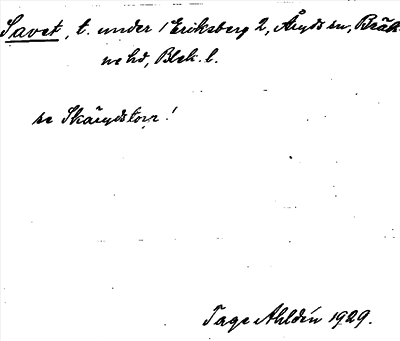 Savet, t. under 1 Eriksberg 2, Åryds sn, Bräk-
ne hd, Blek. l.
se Skärydstorp!
Tage Ahldén 1929.